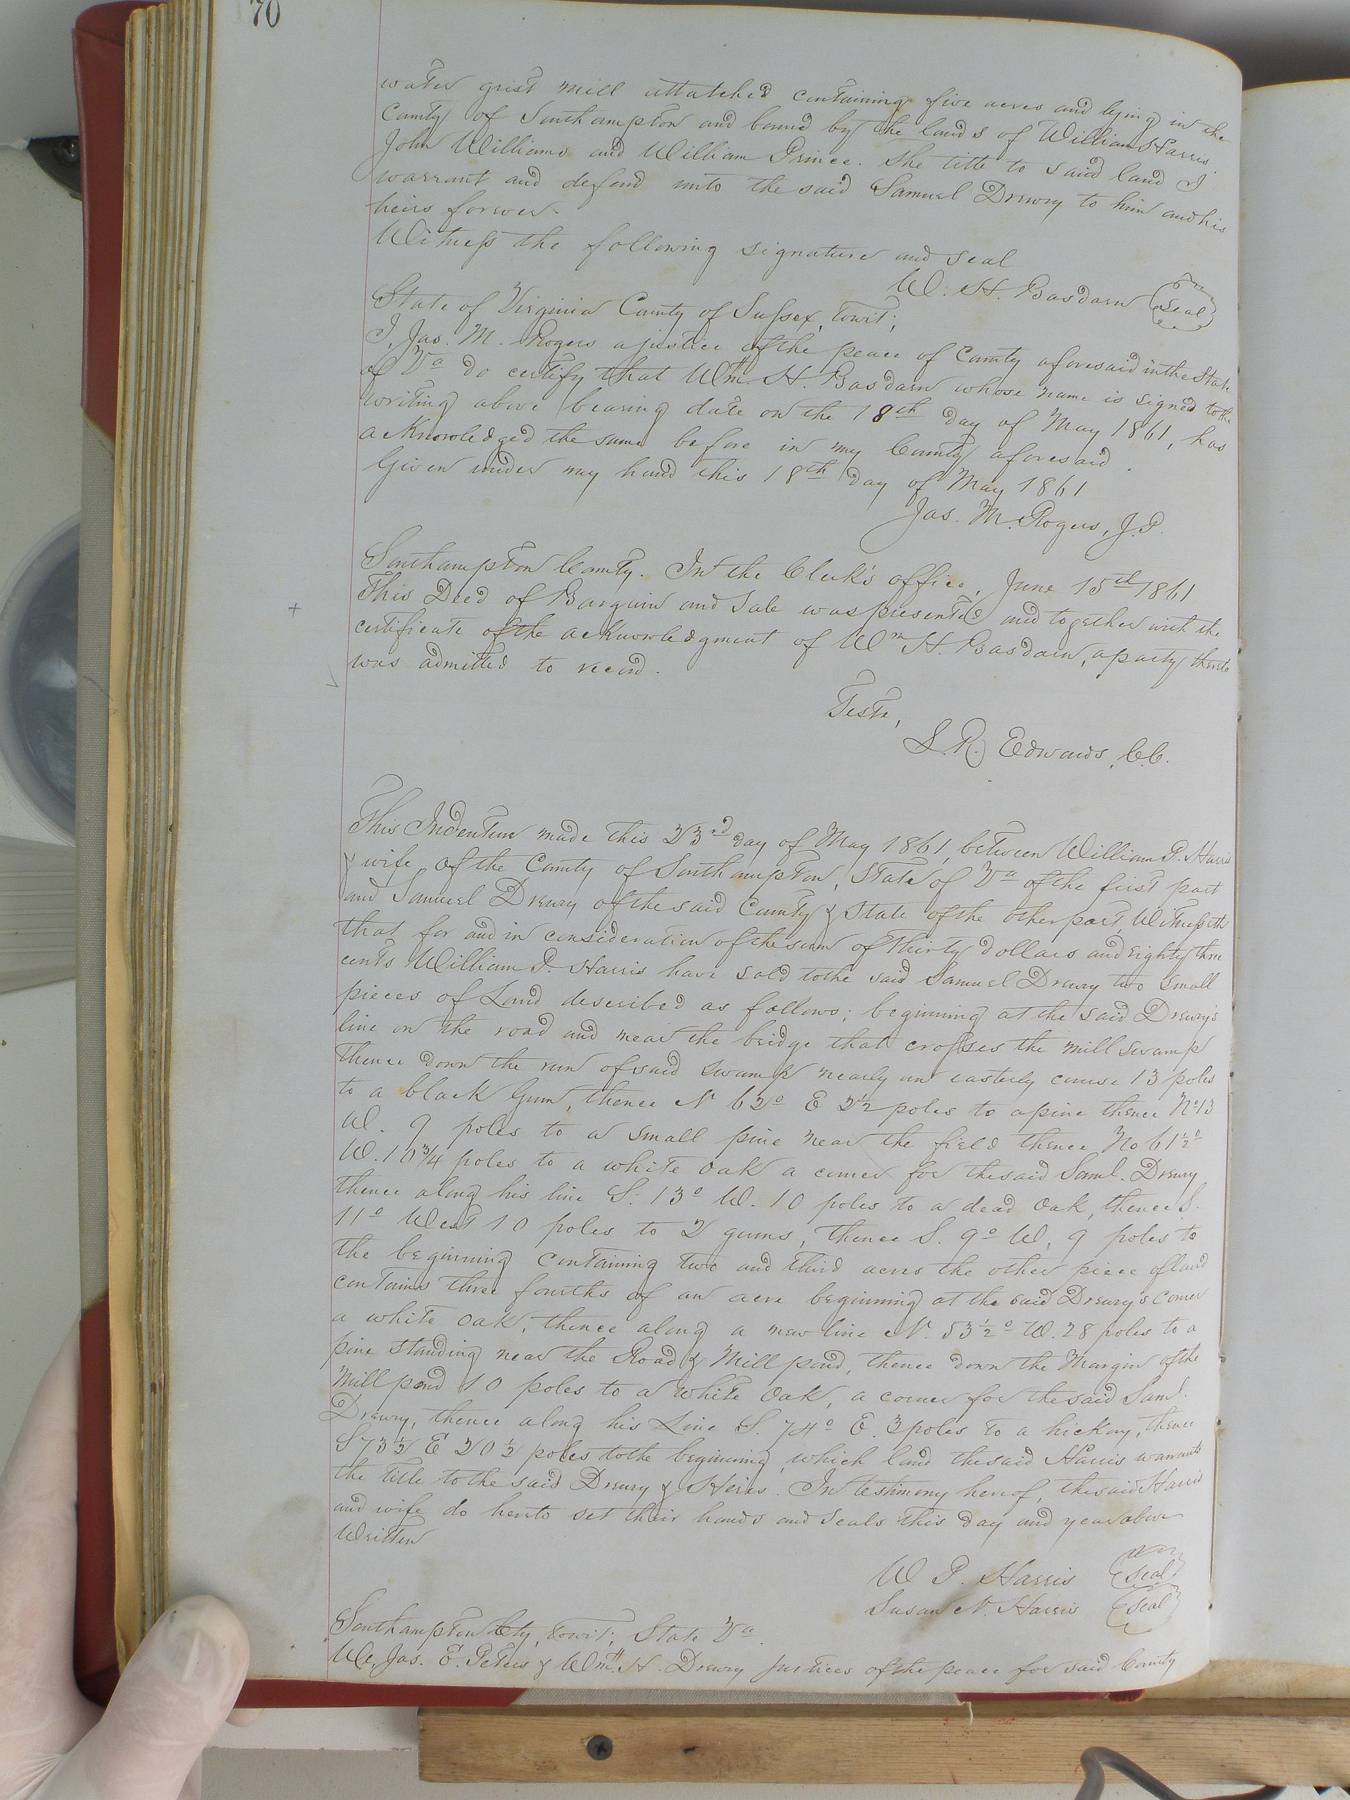 70
water grist mill attatched containing five acres and lying in the
County of Southampton and bound by the lands of William Harris
John Williams and William Prince. The title to said land I
warrant and defend unto the said Samuel Drewry to him and his
heirs forever.
Witness the following signature and seal
W. H. Basdarn Seal
State of Virginia County of Sussex, towit;
I, Jas. M. Rogers a justice of the peace of County aforesaid in the State
of Va do certify that Wm. H. Basdarn whose name is signed to the
writing above bearing date on the 18th day of May 1861, has
acknowledged the same before in my County aforesaid.
Given under my hand this 18th day of May 1861
Jas. M. Rogers, J.P.
Southampton County. In the Clerk's office, June 15th 1861
This Deed of Bargain and Sale was presented and together with the
certificate of the acknowledgment of Wm H. Basdarn, a party thereto
was admitted to record.
Teste,
L. R. Edwards, C.C.
This Indenture made this 23rd day of May 1861, between William P. Harris
& wife, of the County of Southampton, State of Va of the first part
and Samuel Drewry of the said County & State of the other part, Witnesseth
that for and in consideration of the sum of Thirty dollars and Eighty three
cents William P. Harris have sold to the said Samuel Drewry two small
pieces of Land described as follows; beginning at the said Drewry's
line on the road and near the bridge that crosses the mill swamp
thence down the run of said swamp nearly an easterly course 13 poles
to a black Gum, thence N 62° E 22 poles to a pine thence N° 13
W. 9 poles to a small pine near the field thence No 61½°
W. 10¾ poles to a white oak a corner for the said Saml. Drewry
thence along his line S. 13° W. 10 poles to a dead Oak, thence S.
11° West 10 poles to 2 gums, thence S. 9° W, 9 poles to
the beginning containing two and third acres the other piece of land
contains three fourths of an acre beginning at the said Drewry's Corner
a white oak, thence along a new line N. 53½° W. 28 poles to a
pine standing near the Road & Mill pond, thence down the Margin of the
Mill pond 10 poles to a white Oak, a corner for the said Saml.
Drewry, thence along his Line S. 74° E. 3 poles to a hickory, thence
S 73½ E 20½ poles to the beginning, which land the said Harris warrants
the title to the said Drewry & Heirs. In testimony hereof, the said Harris
and wife do hereto set their hands and seals this day and year above
Written
W P. Harris Seal
Susan N. Harris Seal
Southampton Cty, towit; State Va.
We, Jas. E. Peters & Wm. H. Drewry Justices of the peace for said County